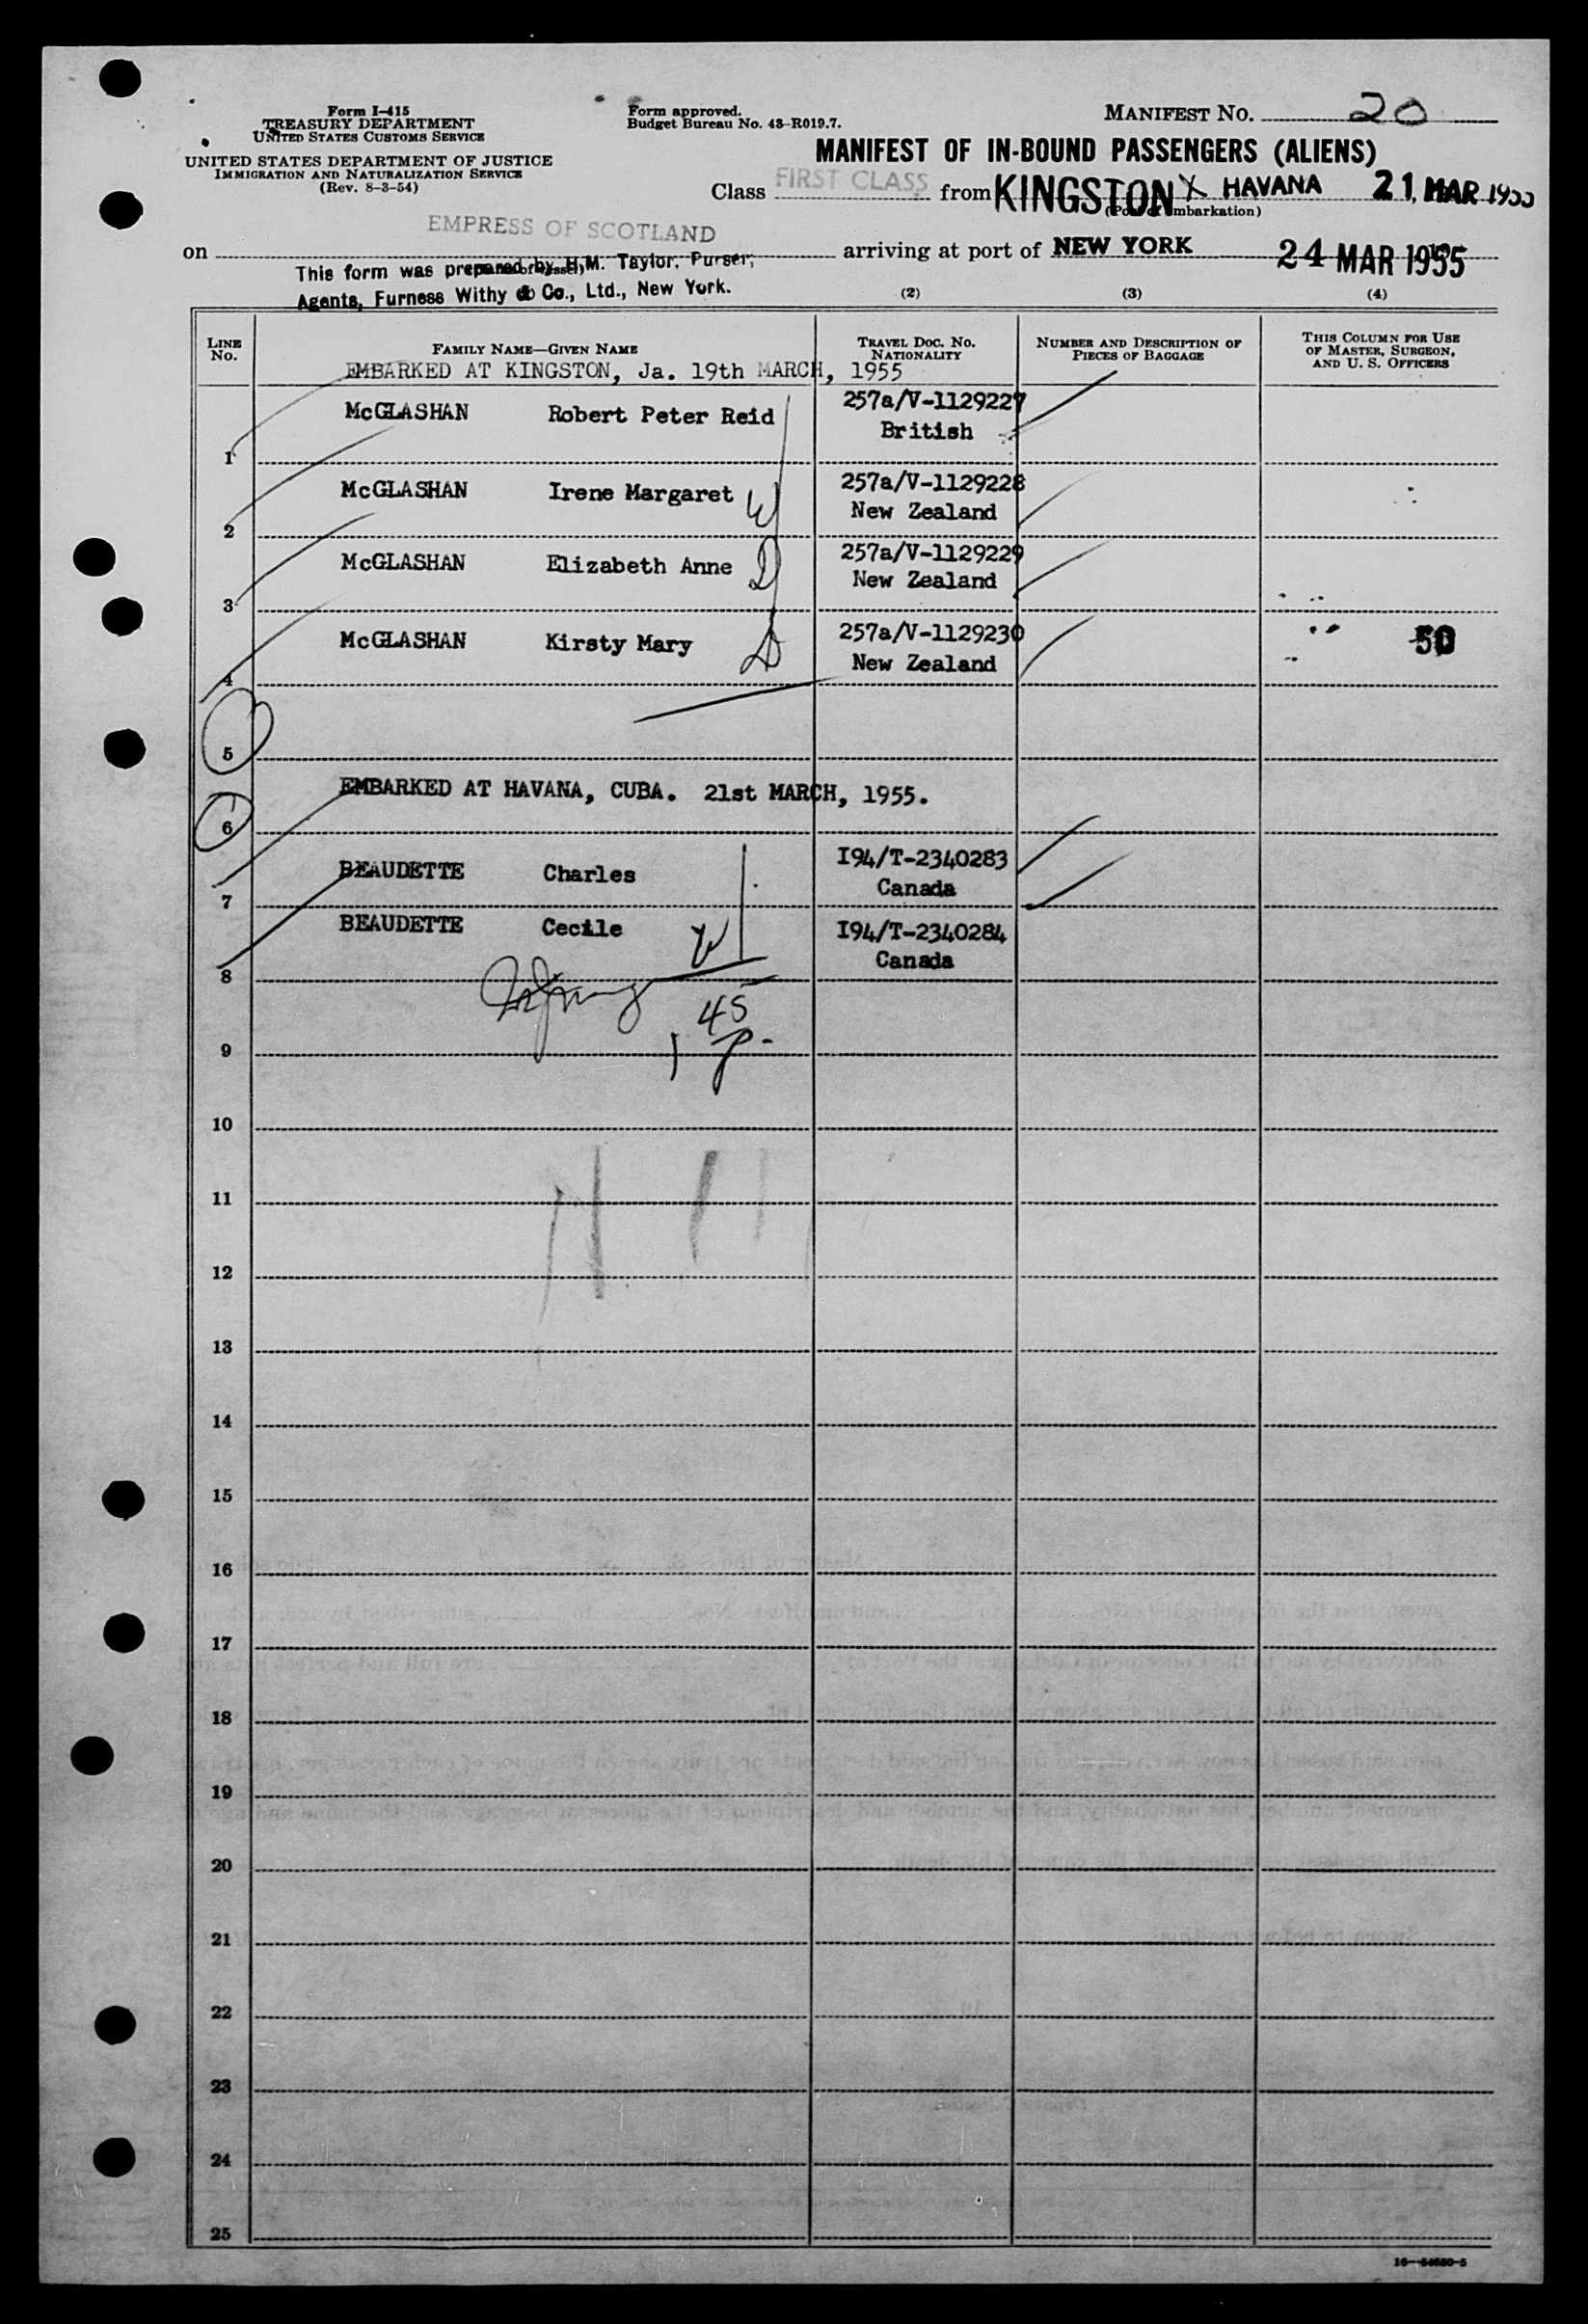 Form I-415
TREASURY DEPARTMENT
UNITED STATES CUSTOMS SERVICE
UNITED STATES DEPARTMENT OF JUSTICE
IMMIGRATION AND NATURALIZATION SERVICE
(Rev. 8-3-54)
Form approved.
Budget Bureau No. 43-R019.7.
MANIFEST NO. 20
MANIFEST OF IN-BOUND PASSENGERS (ALIENS)
Class FIRST CLASS from KINGSTON HAVANA 21, MAR 1955
(Port of embarkation)
on EMPRESS OF SCOTLAND arriving at port of NEW YORK 24 MAR 1955
This form was prepared by H.M. Taylor, Purser,
Agents, Furness Withy & Co., Ltd., New York.
(2) (3) (4)
LINE NO. FAMILY NAME—GIVEN NAME TRAVEL DOC. NO. NATIONALITY NUMBER AND DESCRIPTION OF PIECES OF BAGGAGE THIS COLUMN FOR USE OF MASTER, SURGEON, AND U. S. OFFICERS
EMBARKED AT KINGSTON, Ja. 19th MARCH, 1955
McGLASHAN Robert Peter Reid 257a/V-1129227
British
1
McGLASHAN Irene Margaret W 257a/V-1129228
New Zealand
2
McGLASHAN Elizabeth Anne D 257a/V-1129229
New Zealand
3
McGLASHAN Kirsty Mary D 257a/V-1129230 50
New Zealand
4
5
EMBARKED AT HAVANA, CUBA. 21st MARCH, 1955.
6
BEAUDETTE Charles I94/T-2340283
Canada
7
BEAUDETTE Cecile W I94/T-2340284
Canada
8
45
9
10
11
12
13
14
15
16
17
18
19
20
21
22
23
24
25